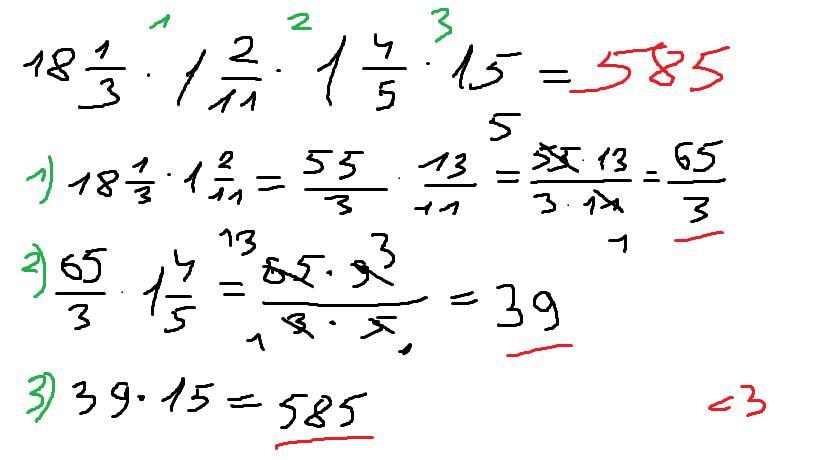 1 2 3
18 1/3 · 1 2/11 · 1 4/5 · 15 = 585
1) 18 1/3 · 1 2/11 = 55/3 · 13/11 = 5 55 · 13 / 3 · 11 1 = 65/3
2) 65/3 · 1 4/5 = 13 65 · 9 3 / 1 3 · 5 1 = 39
3) 39 · 15 = 585
<3